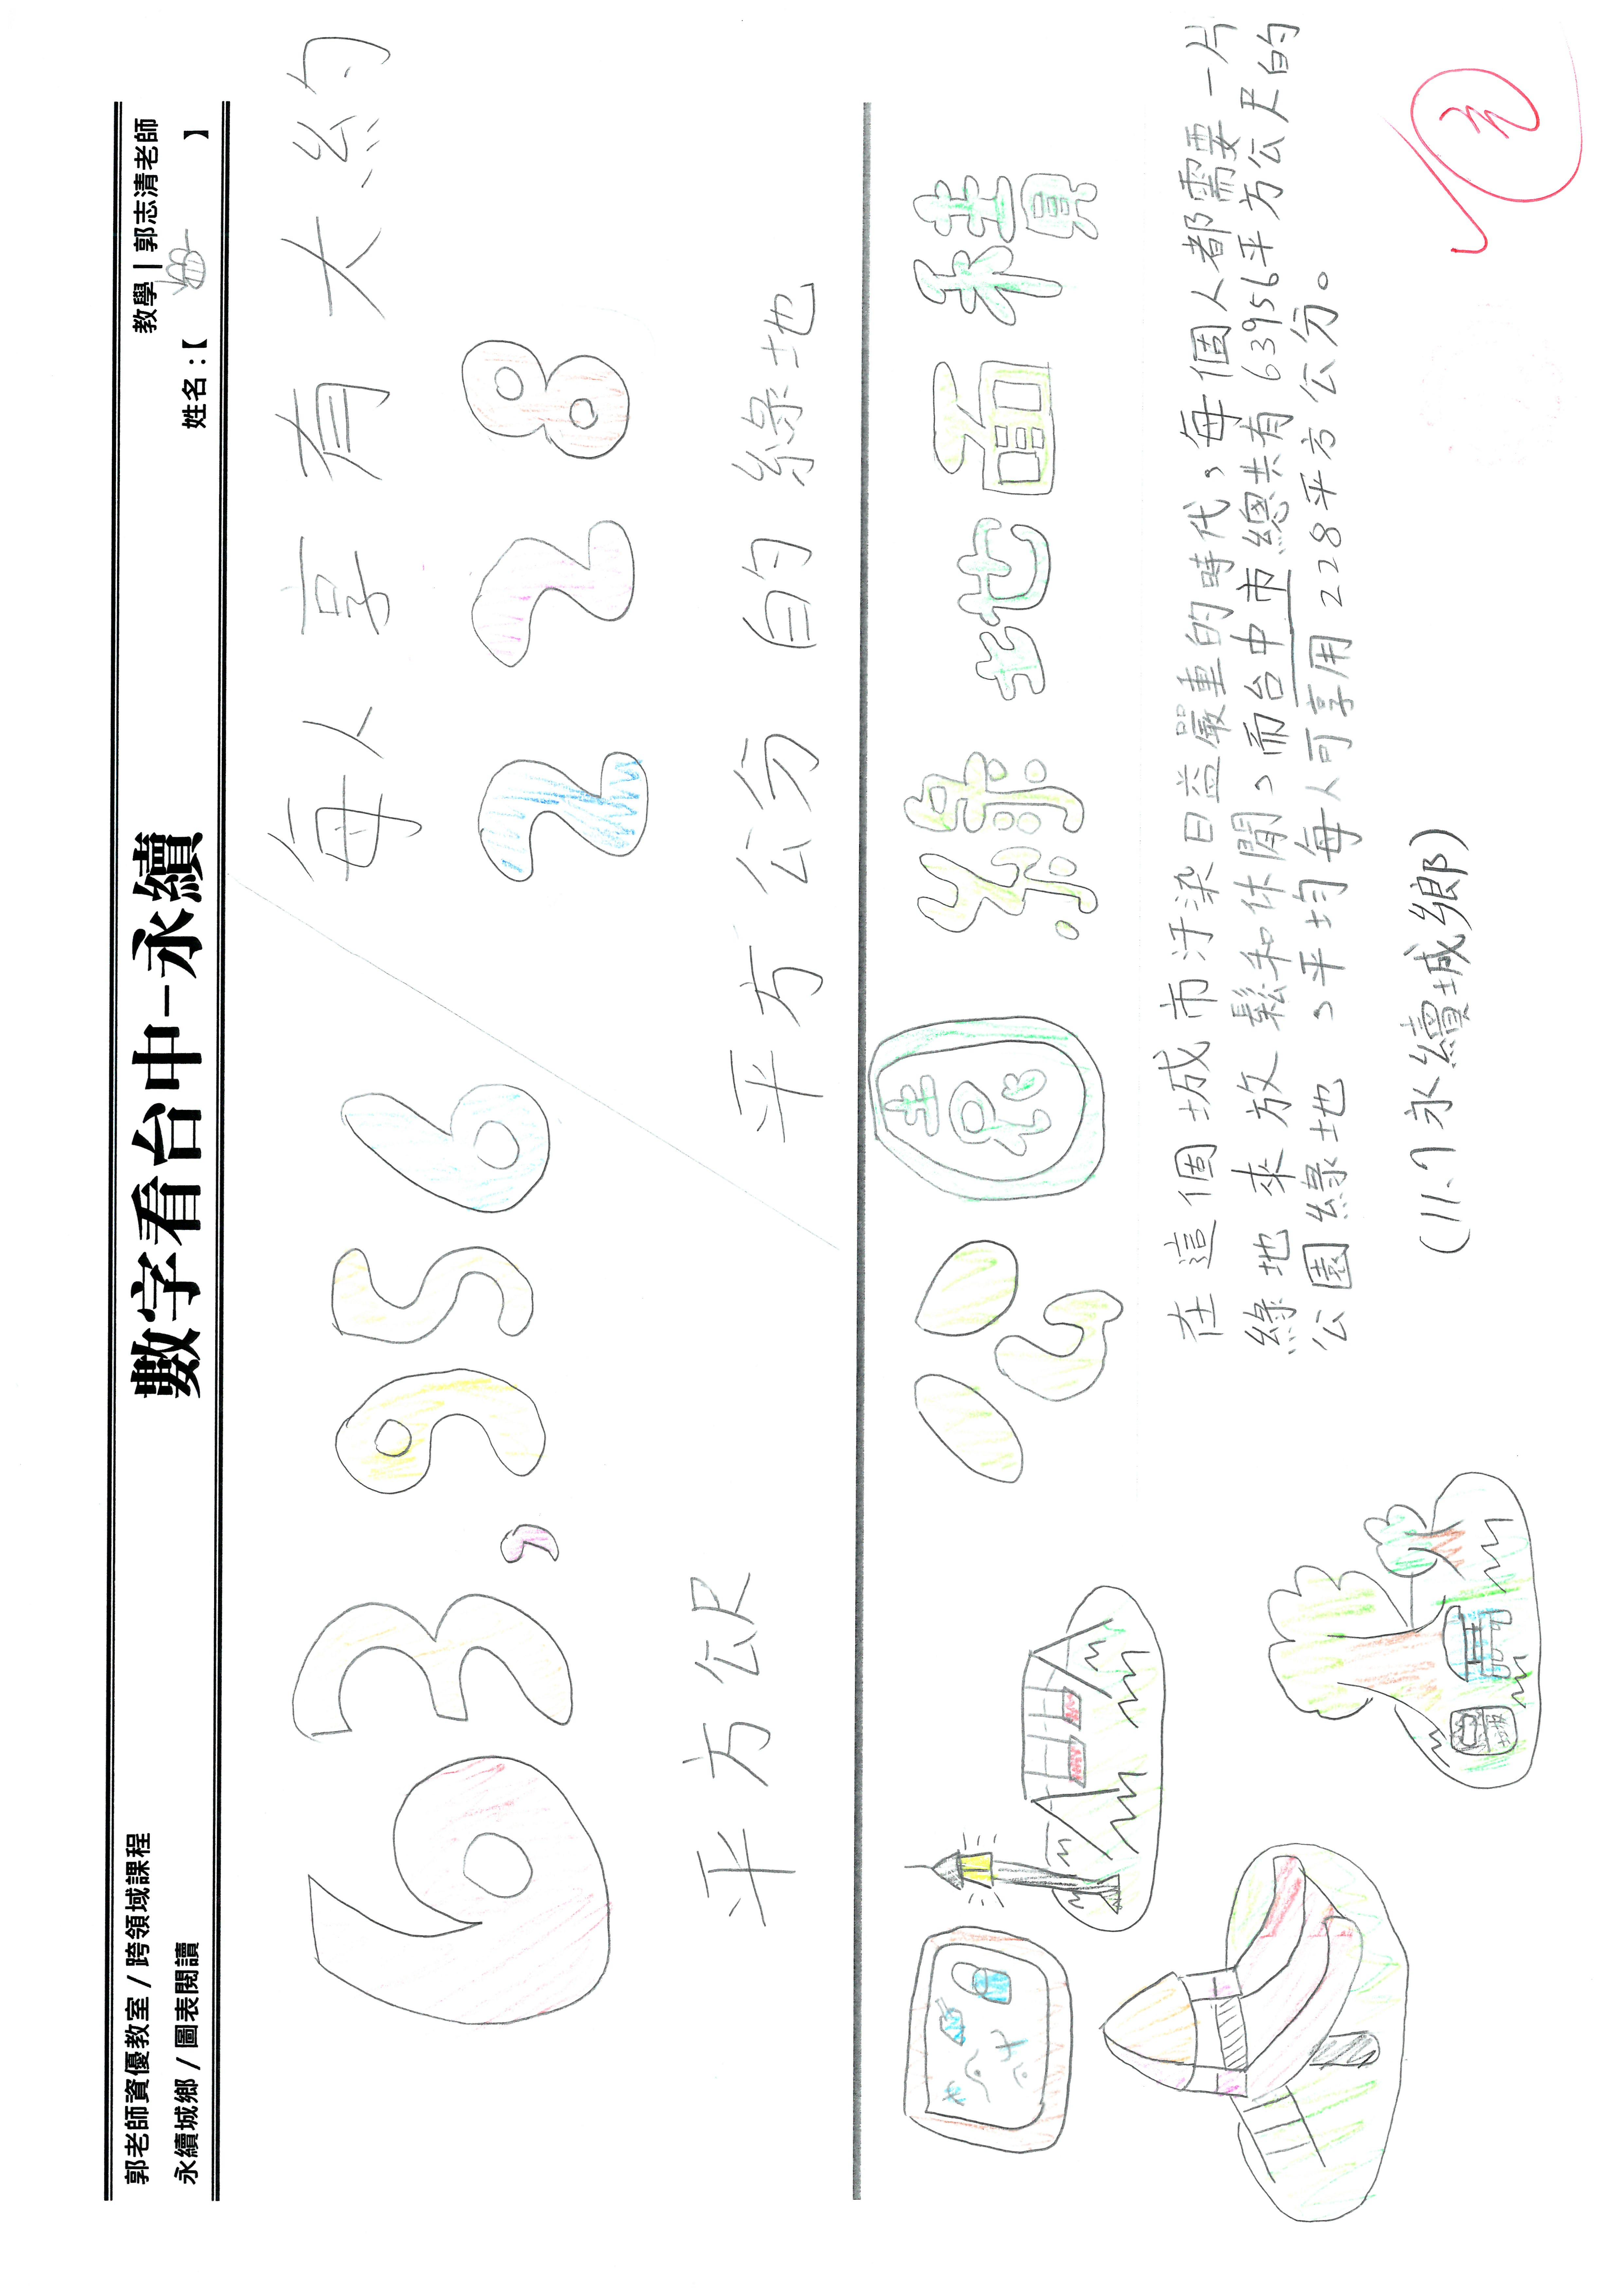 郭老師資優教室 / 跨領域課程
永續城鄉 / 圖表閱讀
數字看台中－永續
教學丨郭志清老師
姓名：【 】
63,956
平方公尺
每人享有大約
228
平方公分的綠地
公園綠地面積
在這個城市汙染日益嚴重的時代，每個人都需要一片
綠地來放鬆和休閒，而台中市總共有63956平方公尺的
公園綠地，平均每人可享用228平方公分。
(11.7永續城鄉)